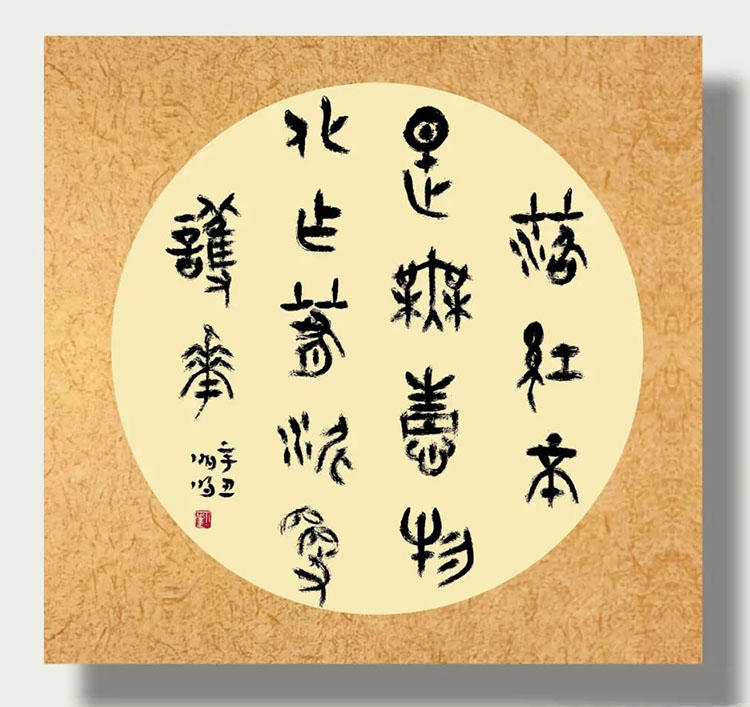 落紅不
是無情物
化乍春泥更
護華
辛丑